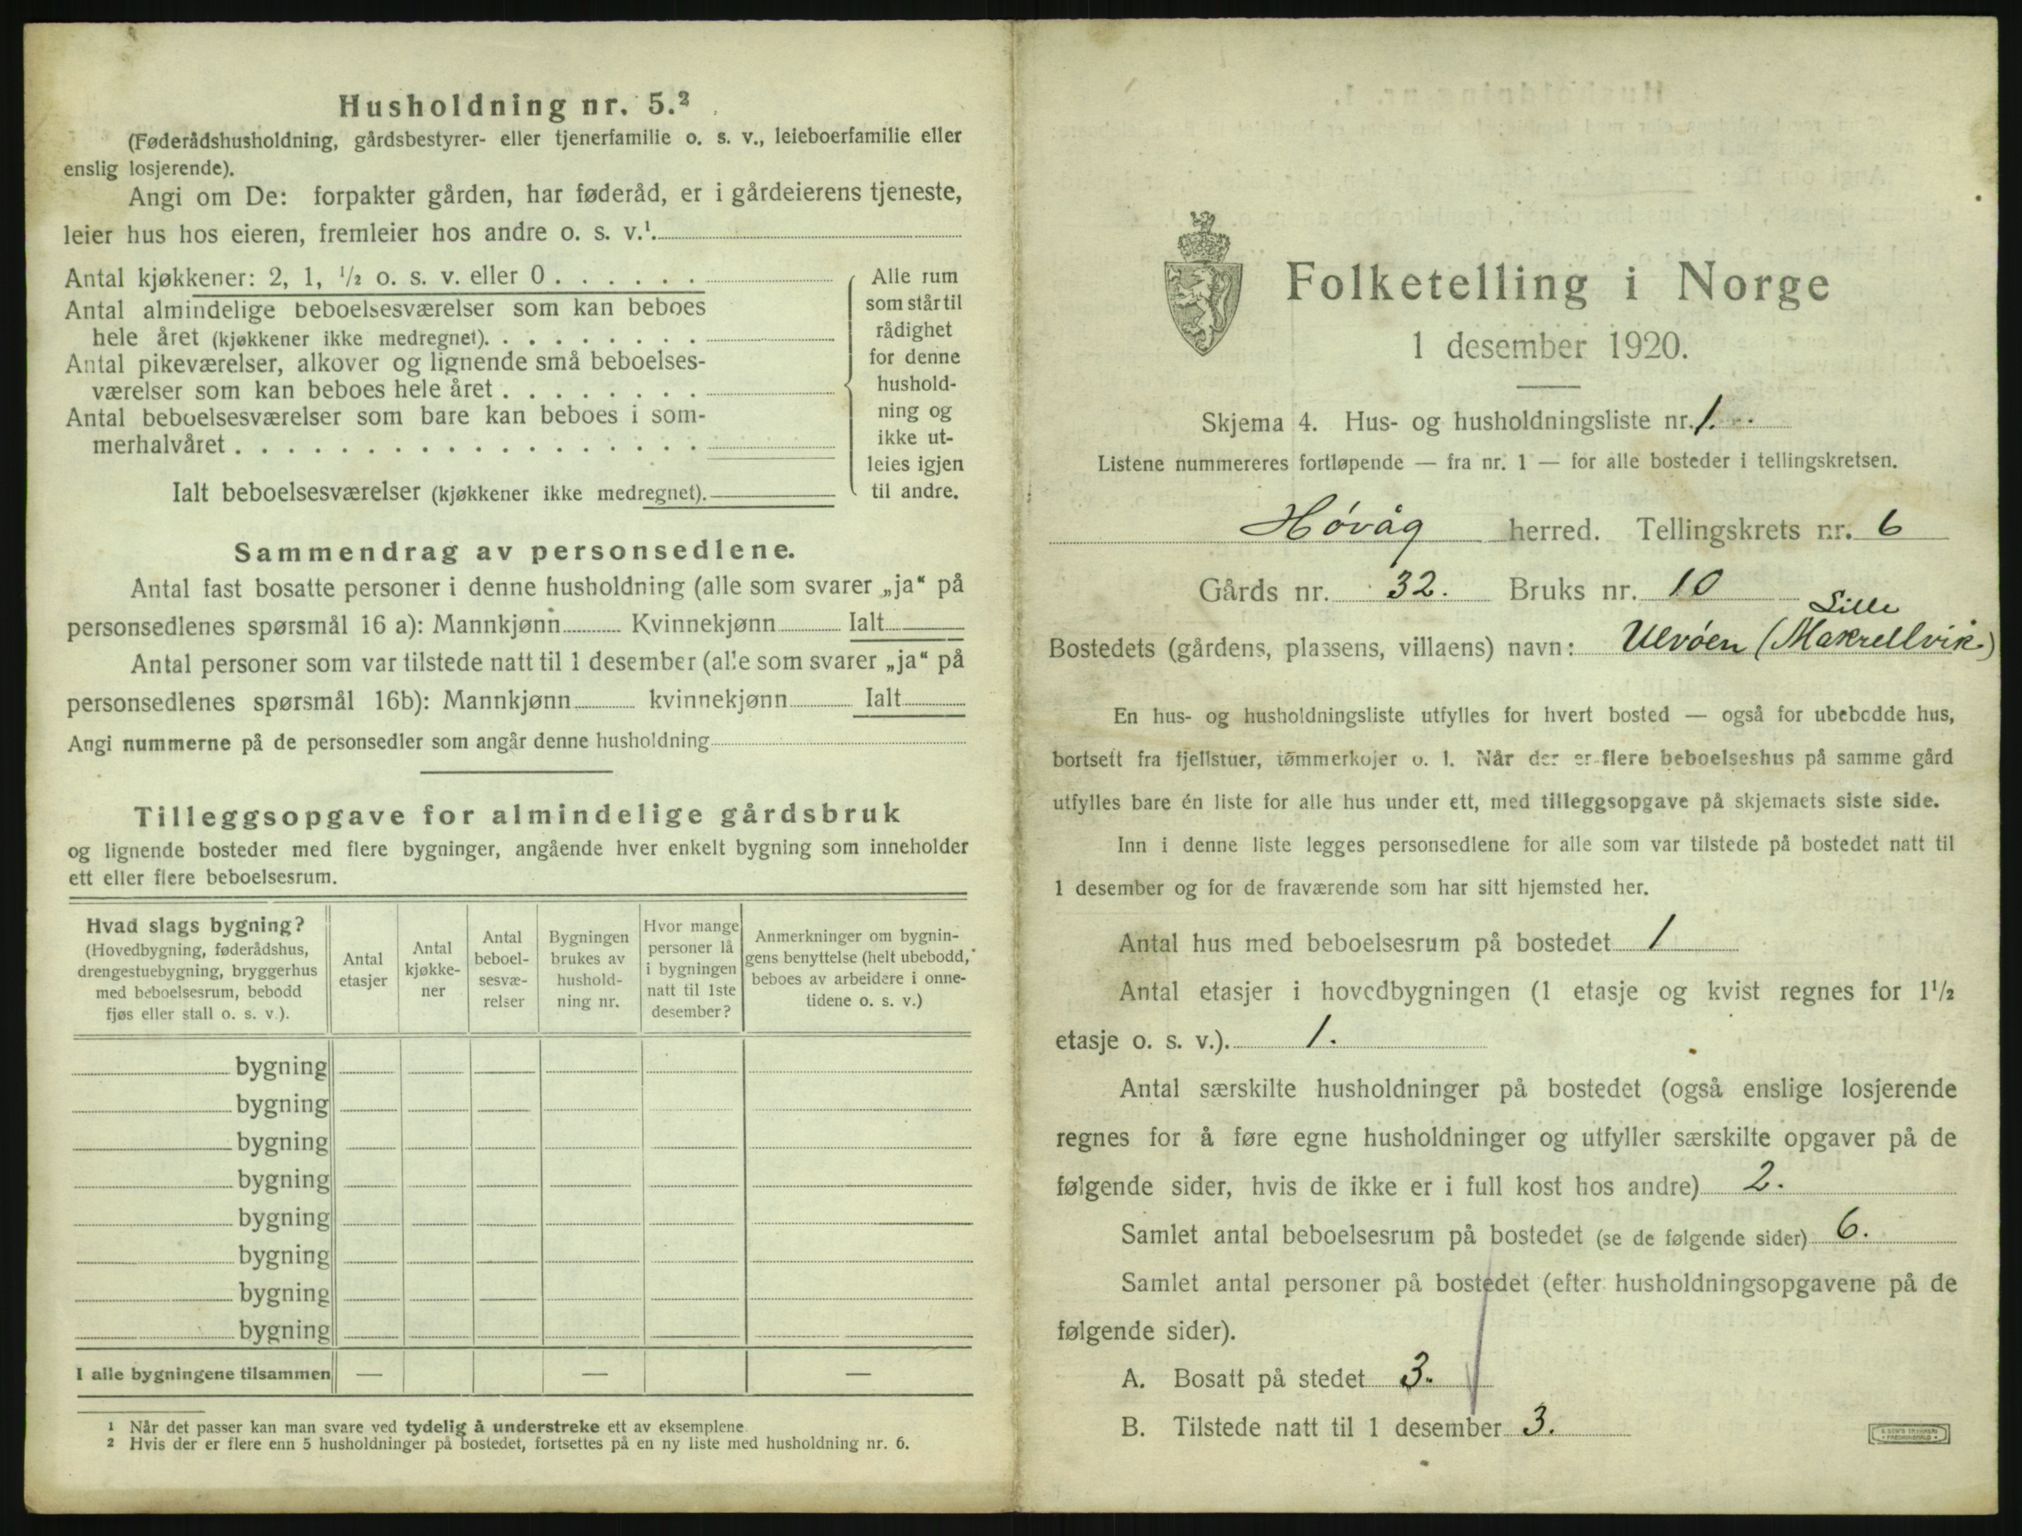 Husholdning nr. 5.²
(Føderådshusholdning, gårdsbestyrer- eller tjenerfamilie o. s. v., leieboerfamilie eller
enslig losjerende).
Angi om De: forpakter gården, har føderåd, er i gårdeierens tjeneste,
leier hus hos eieren, fremleier hos andre o. s. v.¹.
Antal kjøkkener: 2, 1, ½ o. s. v. eller 0 . . . . . .
Antal almindelige beboelsesværelser som kan beboes
hele året (kjøkkener ikke medregnet). . . . . . . . .
Antal pikeværelser, alkover og lignende små beboelses-
værelser som kan beboes hele året . . . . . . . .
Antal beboelsesværelser som bare kan beboes i som-
merhalvåret . . . . . . . . . . . . . . . . . .
Ialt beboelsesværelser (kjøkkener ikke medregnet).
Alle rum
som står til
rådighet
for denne
hushold-
ning og
ikke ut-
leies igjen
til andre.
Sammendrag av personsedlene.
Antal fast bosatte personer i denne husholdning (alle som svarer „ja“ på
personsedlenes spørsmål 16 a): Mannkjønn Kvinnekjønn Ialt
Antal personer som var tilstede natt til 1 desember (alle som svarer „ja“ på
personsedlenes spørsmål 16b): Mannkjønn kvinnekjønn Ialt
Angi nummerne på de personsedler som angår denne husholdning
Tilleggsopgave for almindelige gårdsbruk
og lignende bosteder med flere bygninger, angående hver enkelt bygning som inneholder
ett eller flere beboelsesrum.
Hvad slags bygning?
(Hovedbygning, føderådshus,
drengestuebygning, bryggerhus
med beboelsesrum, bebodd
fjøs eller stall o. s. v.).
Antal
etasjer
Antal
kjøkke-
ner
Antal
beboel-
sesvæ-
relser
Bygningen
brukes av
hushold-
ning nr.
Hvor mange
personer lå
i bygningen
natt til 1ste
desember?
Anmerkninger om bygnin-
gens benyttelse (helt ubebodd,
beboes av arbeidere i onne-
tidene o. s. v.)
bygning
bygning
bygning
bygning
bygning
bygning
bygning
bygning
I alle bygningene tilsammen — — —
¹ Når det passer kan man svare ved tydelig å understreke ett av eksemplene
² Hvis der er flere enn 5 husholdninger på bostedet, fortsettes på en ny liste med husholdning nr. 6.
Folketelling i Norge
1 desember 1920.
Skjema 4. Hus- og husholdningsliste nr. 1.
Listene nummereres fortløpende — fra nr. 1 — for alle bosteder i tellingskretsen.
Høvåg herred. Tellingskrets nr. 6
Gårds nr. 32. Bruks nr. 10
Lille
Bostedets (gårdens, plassens, villaens) navn: Ulvøen (Makrellvik)
En hus- og husholdningsliste utfylles for hvert bosted — også for ubebodde hus,
bortsett fra fjellstuer, tømmerkojer o. l. Når der er flere beboelseshus på samme gård
utfylles bare én liste for alle hus under ett, med tilleggsopgave på skjemaets siste side.
Inn i denne liste legges personsedlene for alle som var tilstede på bostedet natt til
1 desember og for de fraværende som har sitt hjemsted her.
Antal hus med beboelsesrum på bostedet 1
Antal etasjer i hovedbygningen (1 etasje og kvist regnes for 1½
etasje o. s. v.). 1.
Antal særskilte husholdninger på bostedet (også enslige losjerende
regnes for å føre egne husholdninger og utfyller særskilte opgaver på de
følgende sider, hvis de ikke er i full kost hos andre) 2.
Samlet antal beboelsesrum på bostedet (se de følgende sider) 6.
Samlet antal personer på bostedet (efter husholdningsopgavene på de
følgende sider).
A. Bosatt på stedet 3.
B. Tilstede natt til 1 desember 3.